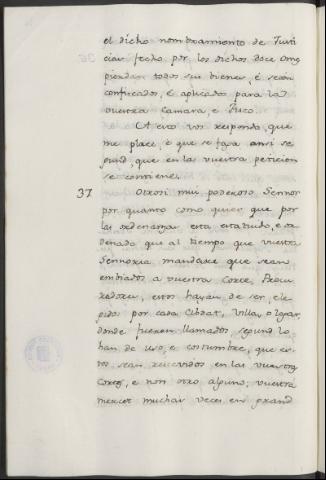 el dicho nombramiento de Justi
cias fecho por los dichos doce omes
pierdan todos sus bienes, é sean
confiscados, é aplicados para la
vuestra Camara, e Fisco.
A esto vos respondo, que
me place, é que se faga ansi se
gund, que en la vuestra peticion
se contiene.
37. Otrosi mui poderoso Sennor
por quanto como quier que por
las ordenanzas esta estatuido, e or
denado que al tiempo que vuestra
Sennoria mandase que sean
embiados a vuestra Corte, Procu
radores, estos hayan de ser, ele
gidos por cada Cibdat, Villa, o logar,
donde fueren llamados segund lo
han de uso, e costumbre, que es
tos sean recevidos en las vuestras
Cortes, e non otro alguno; vuestra
merced muchas veces en grand